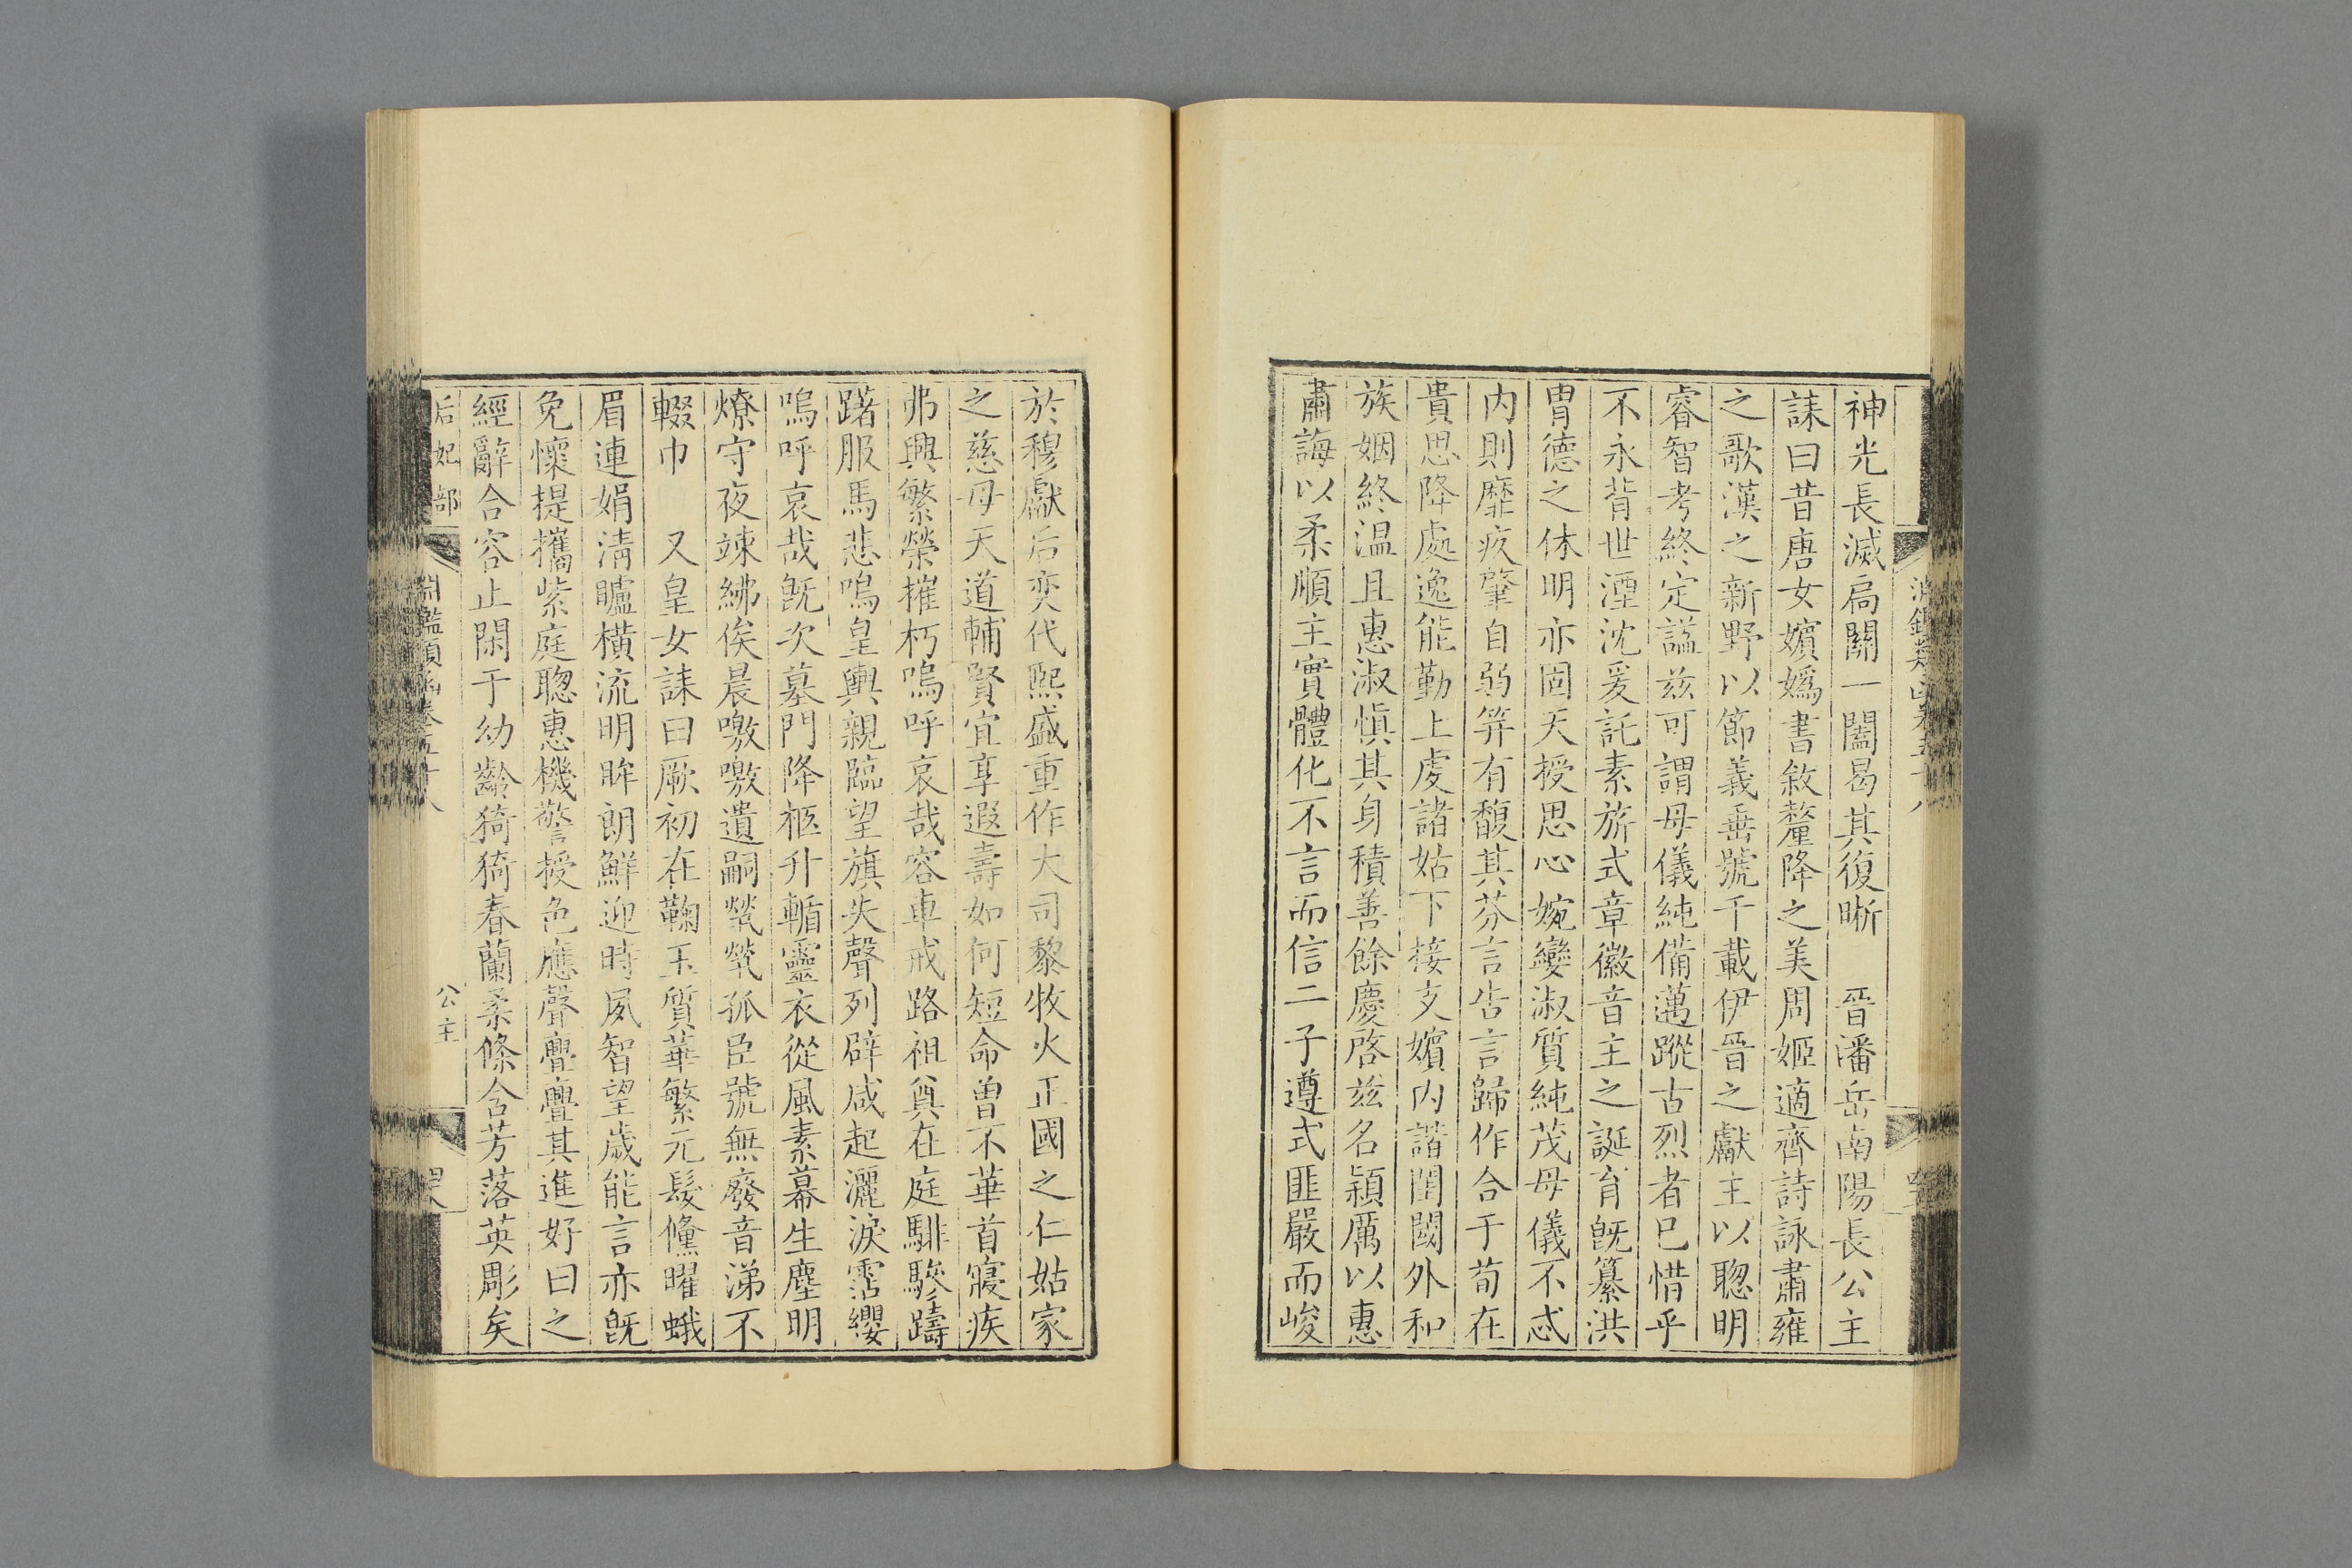 神光長滅扃關一闔曷其復晰　晉潘岳南陽長公主
誄曰昔唐女嬪嬀書敘釐降之美周姬適齊詩詠肅雍
之歌漢之新野以節義垂號千載伊晉之獻主以聰明
睿智考終定謚兹可謂母儀純備邁蹤古烈者巳惜乎
不永背世湮沈爰託素旂式章徽音主之誕育旣纂洪
冑德之休明亦固天授思心婉孌淑質純茂母儀不忒
内則靡疚肇自弱笄有馥其芬言告言歸作合于荀在
貴思降處逸能勤上虔諸姑下接支嬪内諧閨閫外和
族姻終温且惠淑愼其身積善餘慶啓兹名穎厲以惠
肅誨以柔順主實體化不言而信二子遵式匪嚴而峻
於穆獻后奕代熙盛重作大司黎牧火正國之仁姑家
之慈母天道輔賢宜享遐壽如何短命曾不華首寢疾
弗興繁榮摧朽嗚呼哀哉容車戒路祖奠在庭騑驂躊
躇服馬悲鳴皇輿親臨望旗失聲列辟咸起灑淚霑纓
嗚呼哀哉旣次墓門降柩升輴靈衣從風素幕生塵明
燎守夜竦紼俟晨噭噭遺嗣煢煢孤臣號無廢音涕不
輟巾　又皇女誄曰厥初在鞠玉質華繁元髮儵曜蛾
眉連娟淸矑橫流明眸朗鮮迎時夙智望歲能言亦旣
免懷提攜紫庭聰惠機警授色應聲亹亹其進好日之
經辭合容止閑于幼齡猗猗春蘭柔條含芳落英彫矣
后妃部
淵鑑類函卷五十八
公主